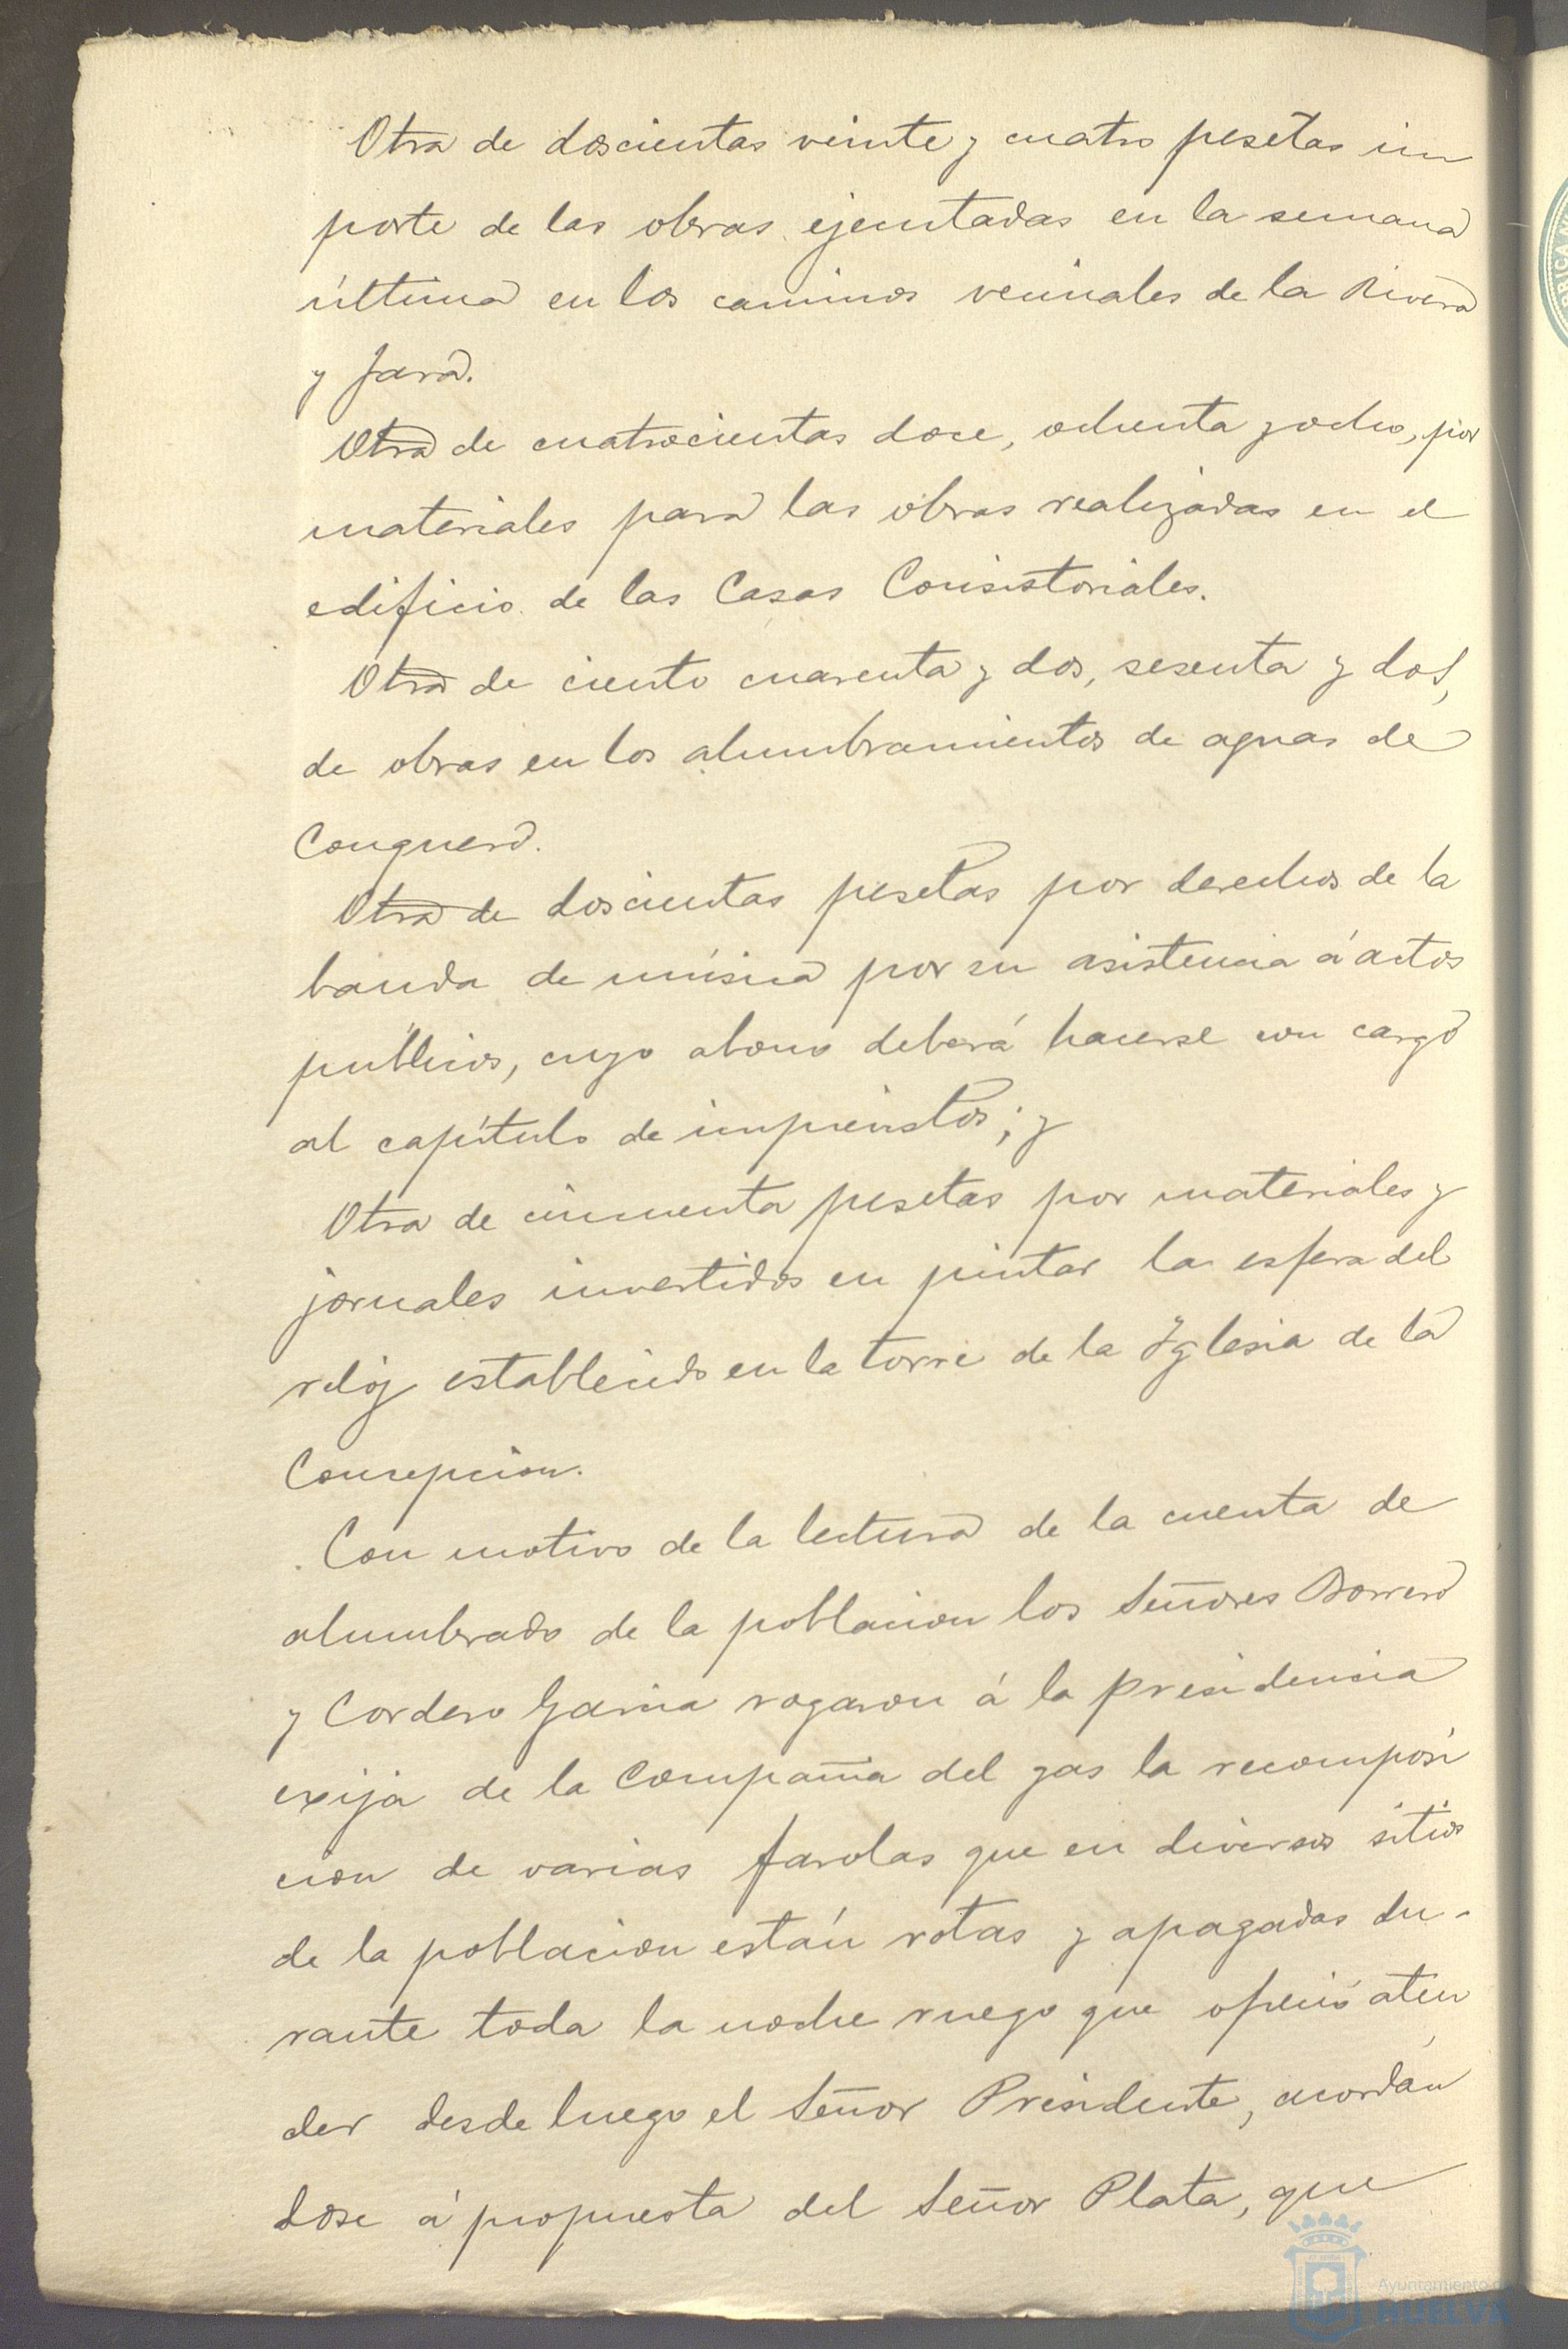 Otra de doscientas veinte y cuatro pesetas im
porte de las obras ejecutadas en la semana
última en los caminos vecinales de la Rivera
y Jara.
Otra de cuatrocientas doce, ochenta y ocho, por
materiales para las obras realizadas en el
edificio de las Casas Consistoriales.
Otra de ciento cuarenta y dos, sesenta y dos,
de obras en los alumbramientos de aguas de
Conquero.
Otra de doscientas pesetas por derechos de la
banda de música por su asistencia á actos
públicos, cuyo abono deberá hacerse con cargo
al capítulo de imprevistos; y
Otra de cincuenta pesetas por materiales y
jornales invertidos en pintar la esfera del
reloj establecido en la torre de la Iglesia de la
Concepcion.
Con motivo de la lectura de la cuenta de
alumbrado de la poblacion los Señores Borrero
y Cordero Garcia rogaron á la presidencia
exija de la Compañia del gas la recomposi
cion de varias farolas que en diversos sitios
de la poblacion están rotas y apagadas du-
rante toda la noche ruego que ofreció aten
der desde luego el Señor Presidente, acordán
dose á propuesta del Señor Plata, que
Ayuntamiento
HUELVA